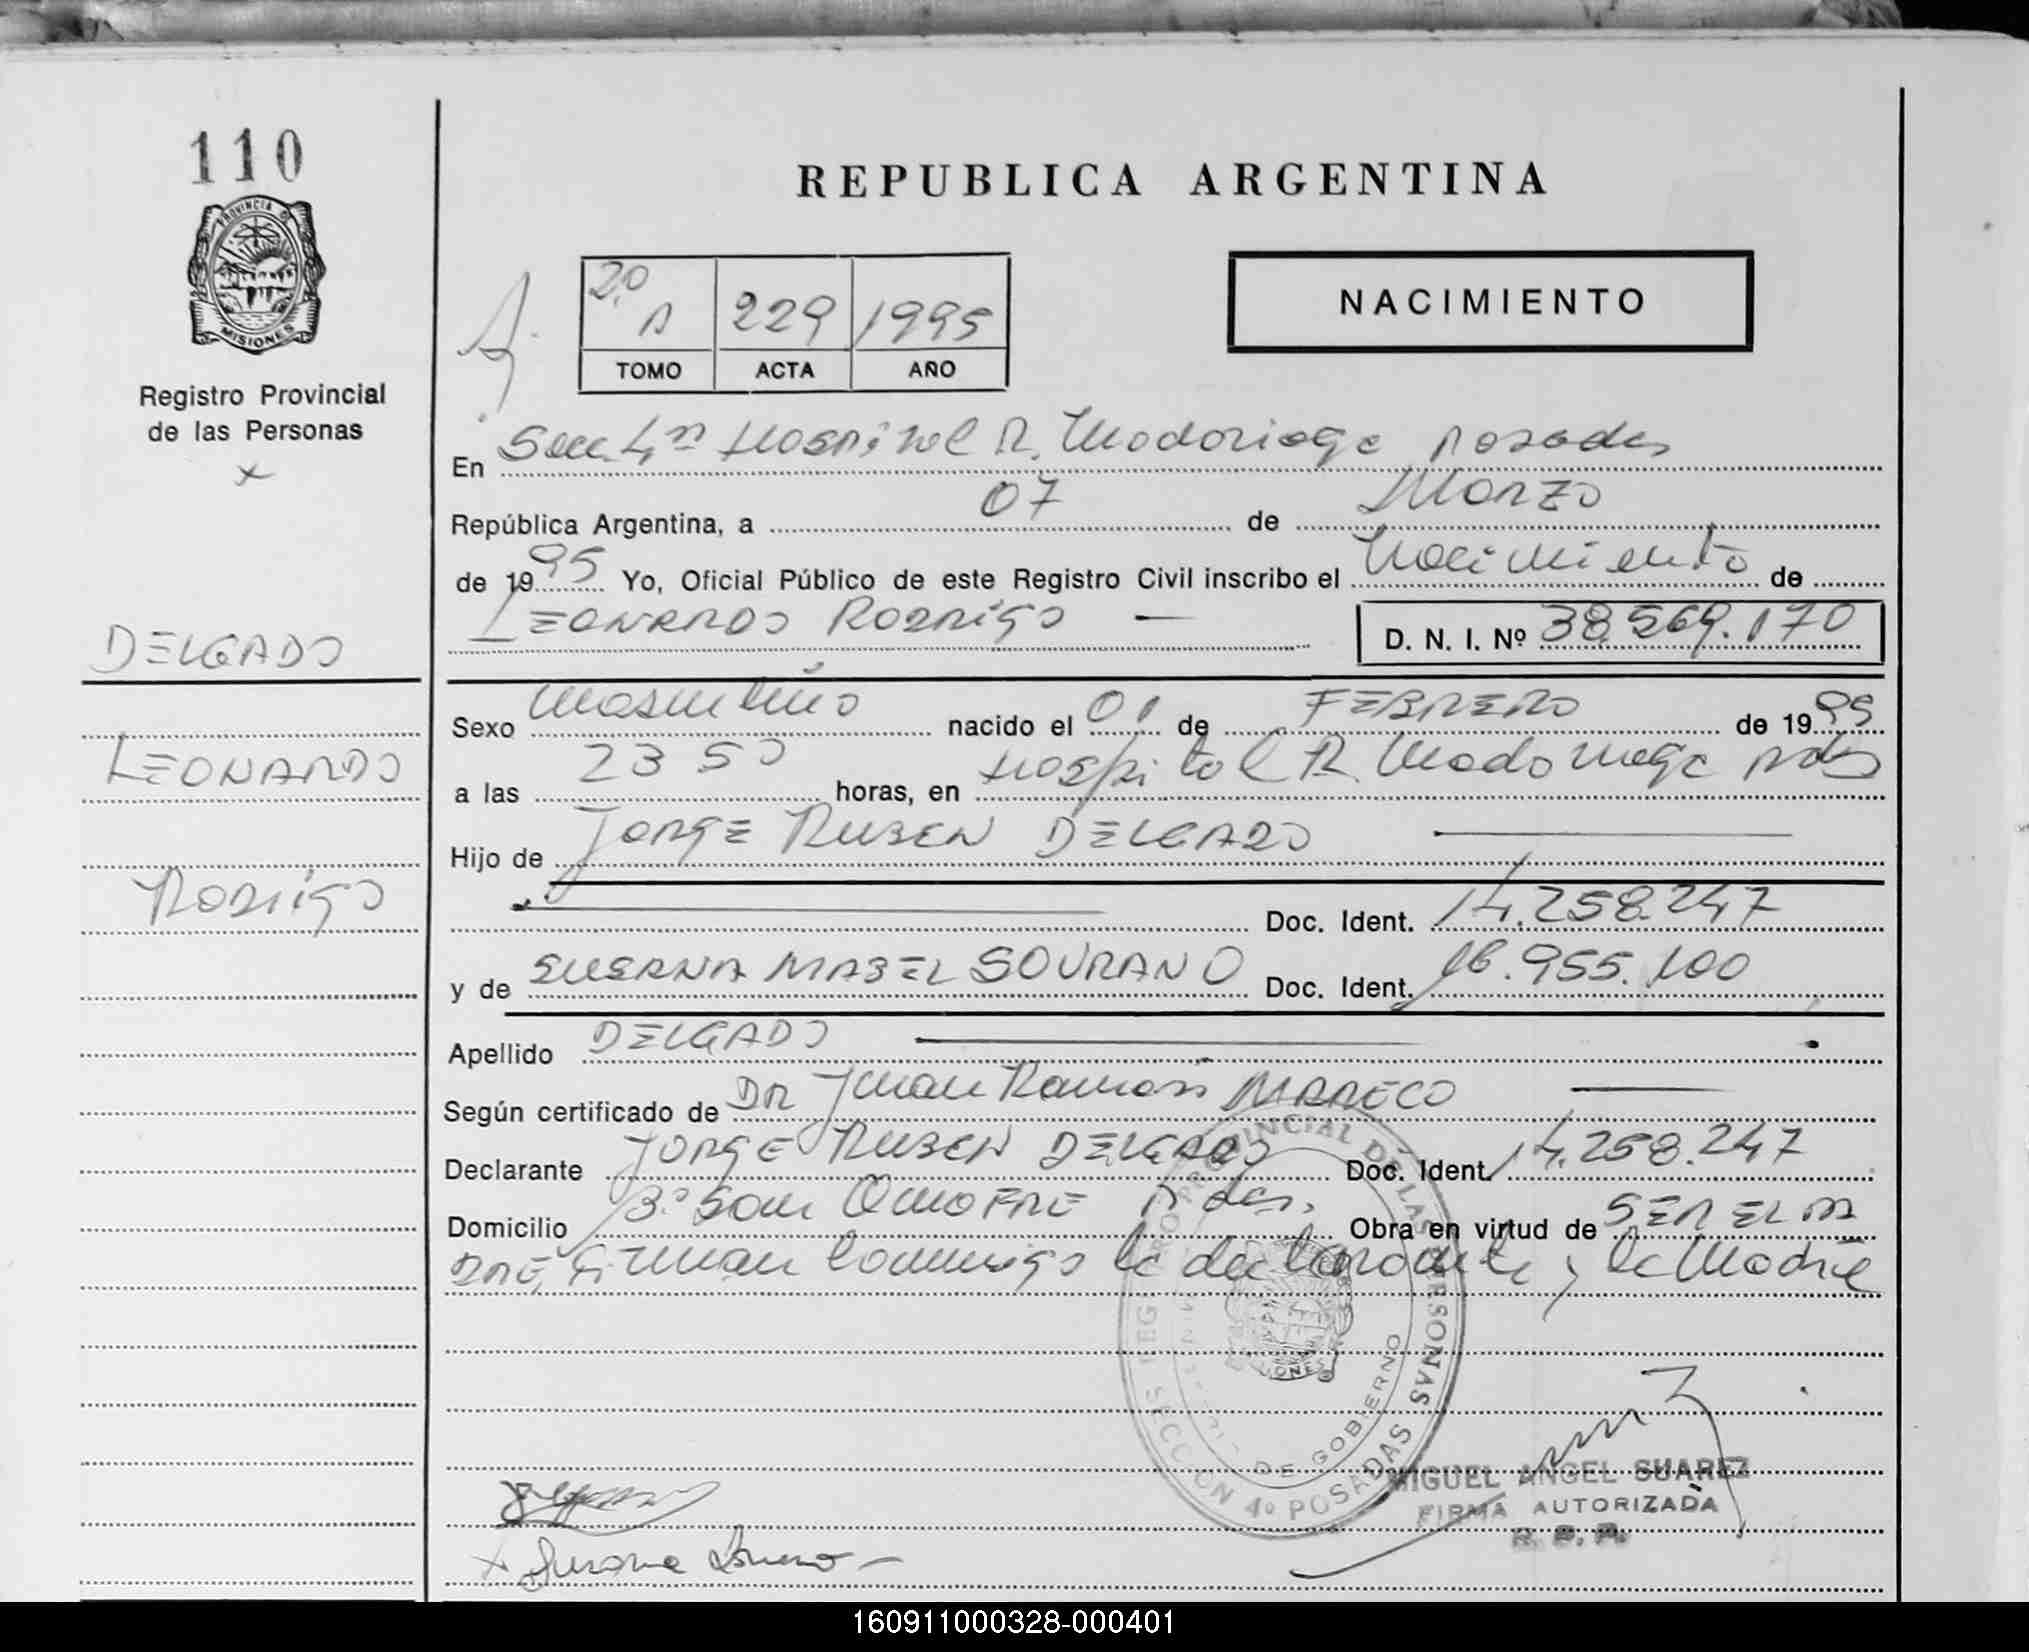 110
PROVINCIA D
MISIONES
Registro Provincial
de las Personas
x
DELGADO
LEONARDO
RODRIGO
REPUBLICA ARGENTINA
2º A 229 1995
TOMO ACTA AÑO
NACIMIENTO
En Secc. 4ª Hospital R. Madariaga Posadas
República Argentina, a 07 de Marzo
de 1995 Yo, Oficial Público de este Registro Civil inscribo el Nacimiento de
LEONARDO RODRIGO — D. N. I. Nº 38.569.170
Sexo Masculino nacido el 01 de FEBRERO de 1995
a las 23 50 horas, en Hospital R. Madariaga Pdas
Hijo de JORGE RUBEN DELGADO
Doc. Ident. 14.258.247
y de SUSANA MABEL Doc. Ident. 16.955.100
Apellido DELGADO
Según certificado de DR Juan Ramon MARECO
Declarante JORGE RUBEN DELGADO Doc. Ident. 14.258.247
Domicilio Bº San Onofre Pdas. Obra en virtud de SER EL PA
DRE, Firman conmigo el declarante y la Madre
REGISTRO PROVINCIAL DE LAS PERSONAS
SECCION 4º POSADAS
DE GOBIERNO
MIGUEL ANGEL SUAREZ
FIRMA AUTORIZADA
R. P. P.
x Susana
160911000328-000401